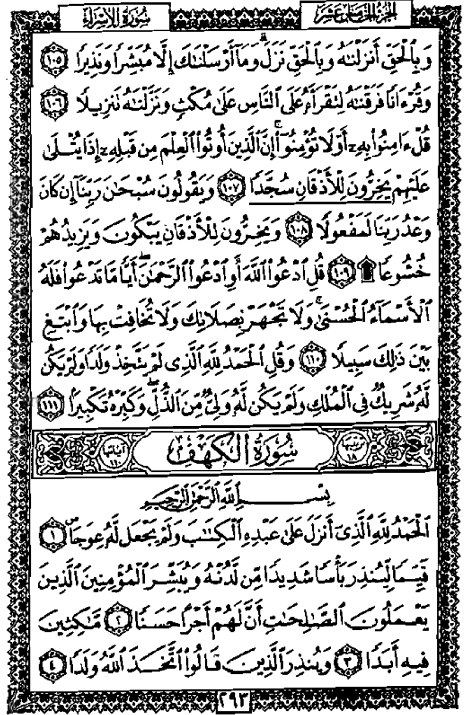 سُورَةُ الإِسْرَاء الجُزْءُ الخَامِسَ عَشَرَ
وَبِالْحَقِّ أَنزَلْنَاهُ وَبِالْحَقِّ نَزَلَ وَمَا أَرْسَلْنَاكَ إِلَّا مُبَشِّرًا وَنَذِيرًا ١٠٥
وَقُرْءَانًا فَرَقْنَاهُ لِتَقْرَأَهُ عَلَى النَّاسِ عَلَىٰ مُكْثٍ وَنَزَّلْنَاهُ تَنزِيلًا ١٠٦
قُلْ ءَامِنُوا بِهِ أَوْ لَا تُؤْمِنُوا إِنَّ الَّذِينَ أُوتُوا الْعِلْمَ مِن قَبْلِهِ إِذَا يُتْلَىٰ
عَلَيْهِمْ يَخِرُّونَ لِلْأَذْقَانِ سُجَّدًا ١٠٧ وَيَقُولُونَ سُبْحَانَ رَبِّنَا إِن كَانَ
وَعْدُ رَبِّنَا لَمَفْعُولًا ١٠٨ وَيَخِرُّونَ لِلْأَذْقَانِ يَبْكُونَ وَيَزِيدُهُمْ
خُشُوعًا ۩ ١٠٩ قُلِ ادْعُوا اللَّهَ أَوِ ادْعُوا الرَّحْمَٰنَ أَيًّا مَّا تَدْعُوا فَلَهُ
الْأَسْمَاءُ الْحُسْنَىٰ وَلَا تَجْهَرْ بِصَلَاتِكَ وَلَا تُخَافِتْ بِهَا وَابْتَغِ
بَيْنَ ذَٰلِكَ سَبِيلًا ١١٠ وَقُلِ الْحَمْدُ لِلَّهِ الَّذِي لَمْ يَتَّخِذْ وَلَدًا وَلَمْ يَكُن
لَّهُ شَرِيكٌ فِي الْمُلْكِ وَلَمْ يَكُن لَّهُ وَلِيٌّ مِّنَ الذُّلِّ وَكَبِّرْهُ تَكْبِيرًا ١١١
سُورَةُ الكَهْفِ
بِسْمِ اللَّهِ الرَّحْمَٰنِ الرَّحِيمِ
الْحَمْدُ لِلَّهِ الَّذِي أَنزَلَ عَلَىٰ عَبْدِهِ الْكِتَابَ وَلَمْ يَجْعَل لَّهُ عِوَجًا ١
قَيِّمًا لِّيُنذِرَ بَأْسًا شَدِيدًا مِّن لَّدُنْهُ وَيُبَشِّرَ الْمُؤْمِنِينَ الَّذِينَ
يَعْمَلُونَ الصَّالِحَاتِ أَنَّ لَهُمْ أَجْرًا حَسَنًا ٢ مَّاكِثِينَ
فِيهِ أَبَدًا ٣ وَيُنذِرَ الَّذِينَ قَالُوا اتَّخَذَ اللَّهُ وَلَدًا ٤
٢٩٣